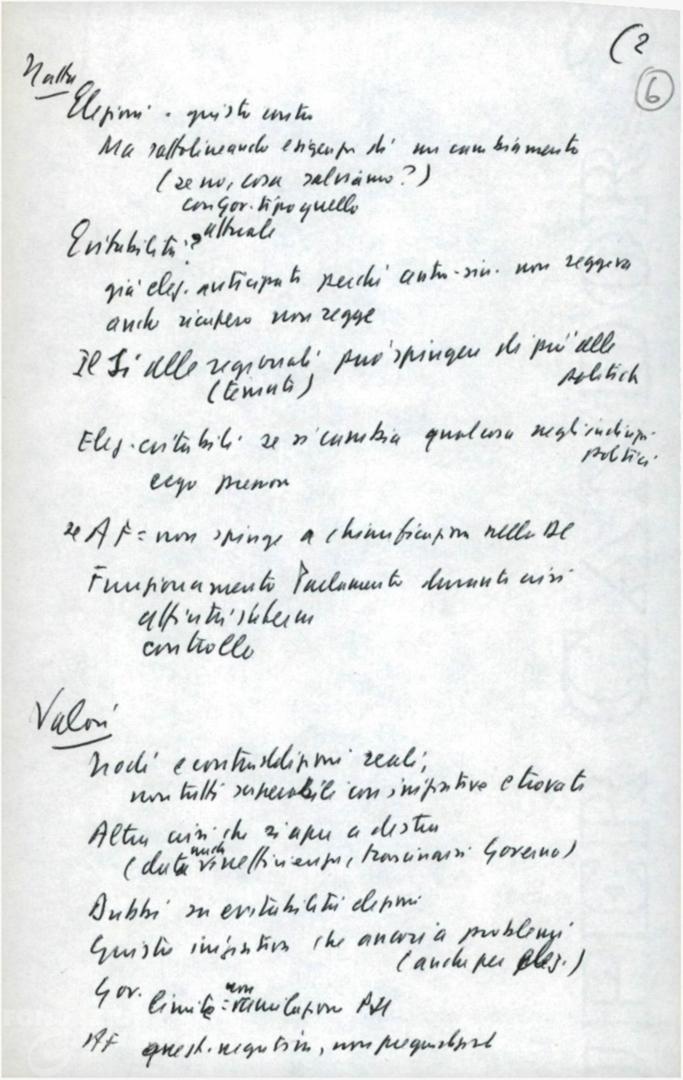 (2
6
Natta
Elezioni - giusto
Ma sottolineando esigenza di un cambiamento
(se no, cosa salviamo?)
con Gov. tipo quello
attuale
Evitabilità?
già elez. anticipate perché centro-sin. non reggeva
anche recupero non regge
Il Sì alle regionali può spingere di più alle
(temuti) politiche
Elez. evitabili se si cambia qualcosa negli indirizzi
politici
ecco
se AF = non spinge a chiarificazione nella DC
Funzionamento Parlamento durante crisi
controllo
Valori
Nodi e contraddizioni reali,
non tutti superabili con iniziative e trovate
Altra crisi che si apre a destra
(data anche, trascinarsi Governo)
Dubbi su evitabilità elezioni
Giusta iniziativa che ancori a problemi
(anche per elez.)
Gov. limite: non
AF quest. negativa, non pregiudiziale